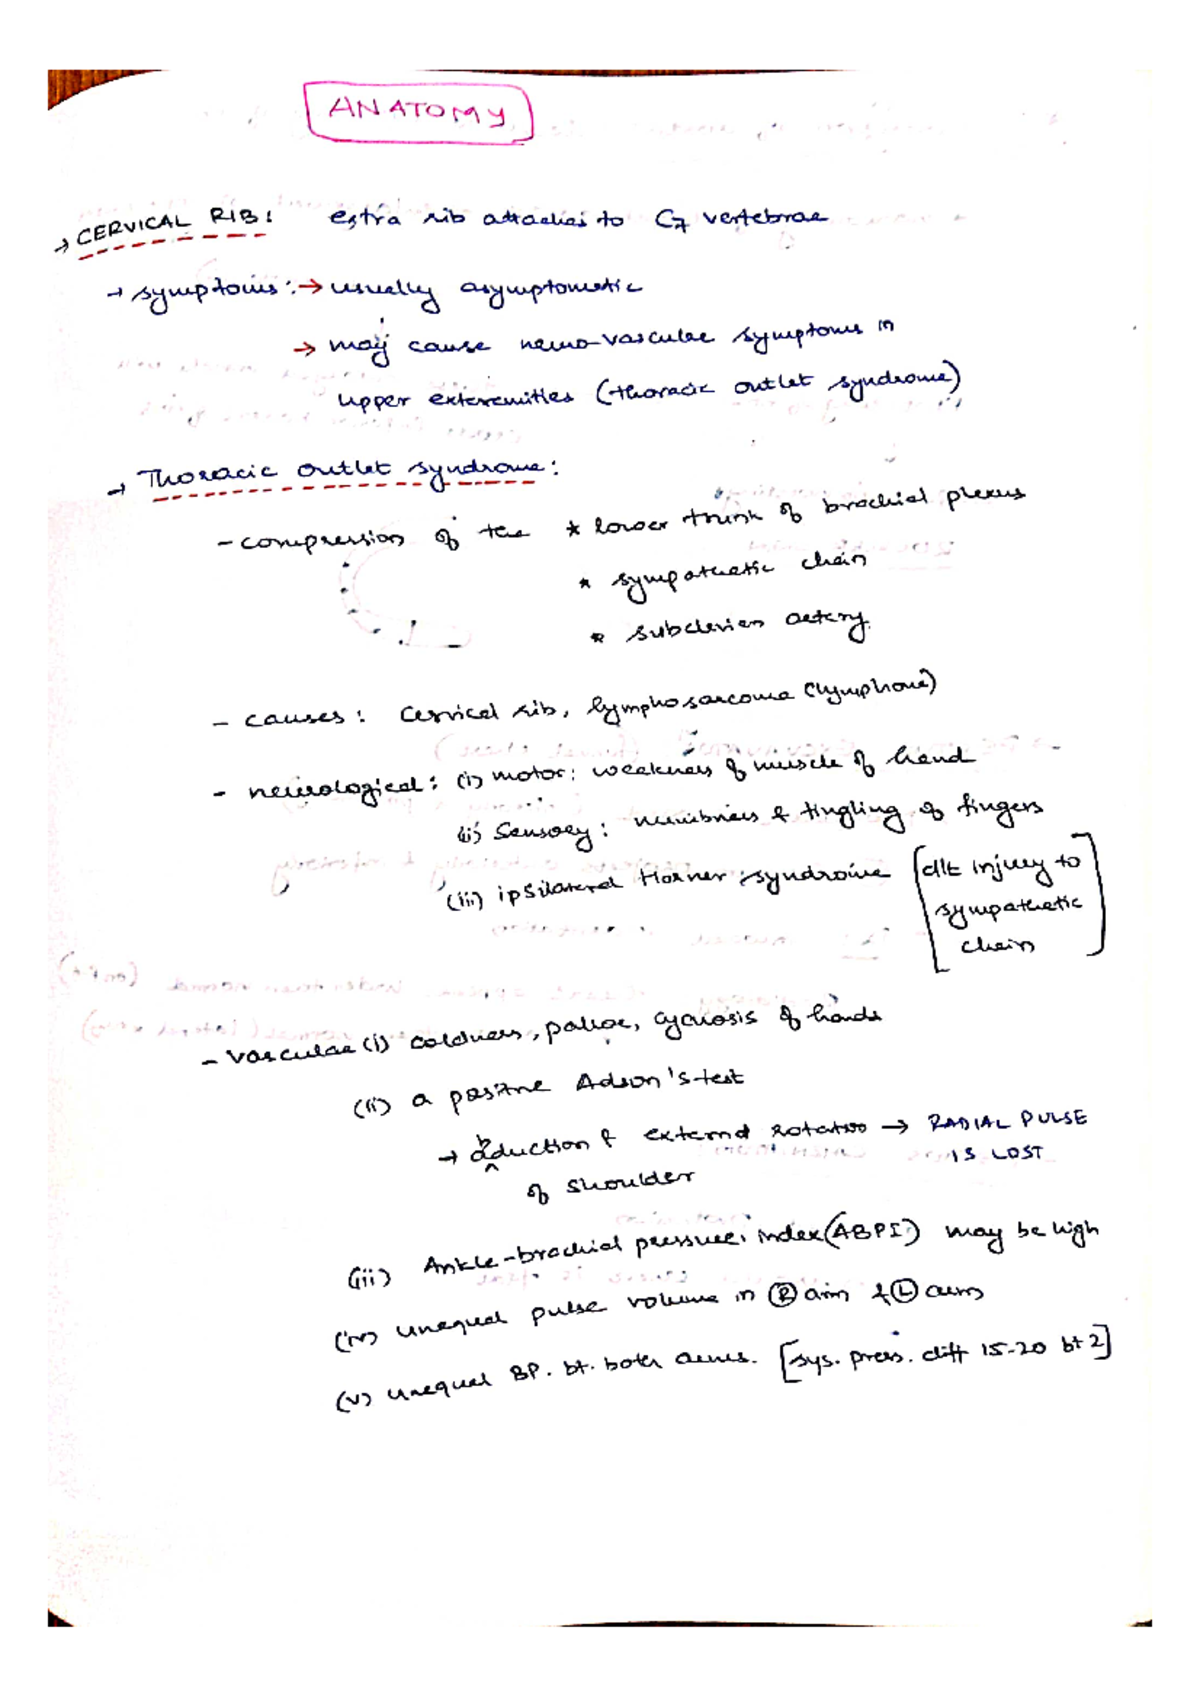 ANATOMY
→ CERVICAL RIB: extra rib attaches to C7 vertebrae
→ symptoms: → usually asymptomatic
→ may cause neuro-vascular symptoms in
upper exteremities (thoracic outlet syndrome)
→ Thoracic outlet syndrome:
- compression of the * lower trunk of brachial plexus
* sympathetic chain
* subclavian artery.
- causes: cervical rib, lymphosarcoma (lymphome)
- neurological: (i) motor: weakness of muscle of hand
(ii) Sensory: numbness & tingling of fingers
(iii) ipsilateral Horner syndrome [d/t injury to
sympathetic
chain]
- vascular (i) coldness, pallor, cyanosis of hands
(ii) a positive Adson's test
→ abduction & external rotation → RADIAL PULSE
of shoulder IS LOST
(iii) Ankle-brachial pressure index (ABPI) may be high
(iv) unequal pulse volume in Ⓡ arm & Ⓛ arm
(v) unequal BP. bt. both arms. [sys. press. diff 15-20 bt 2]